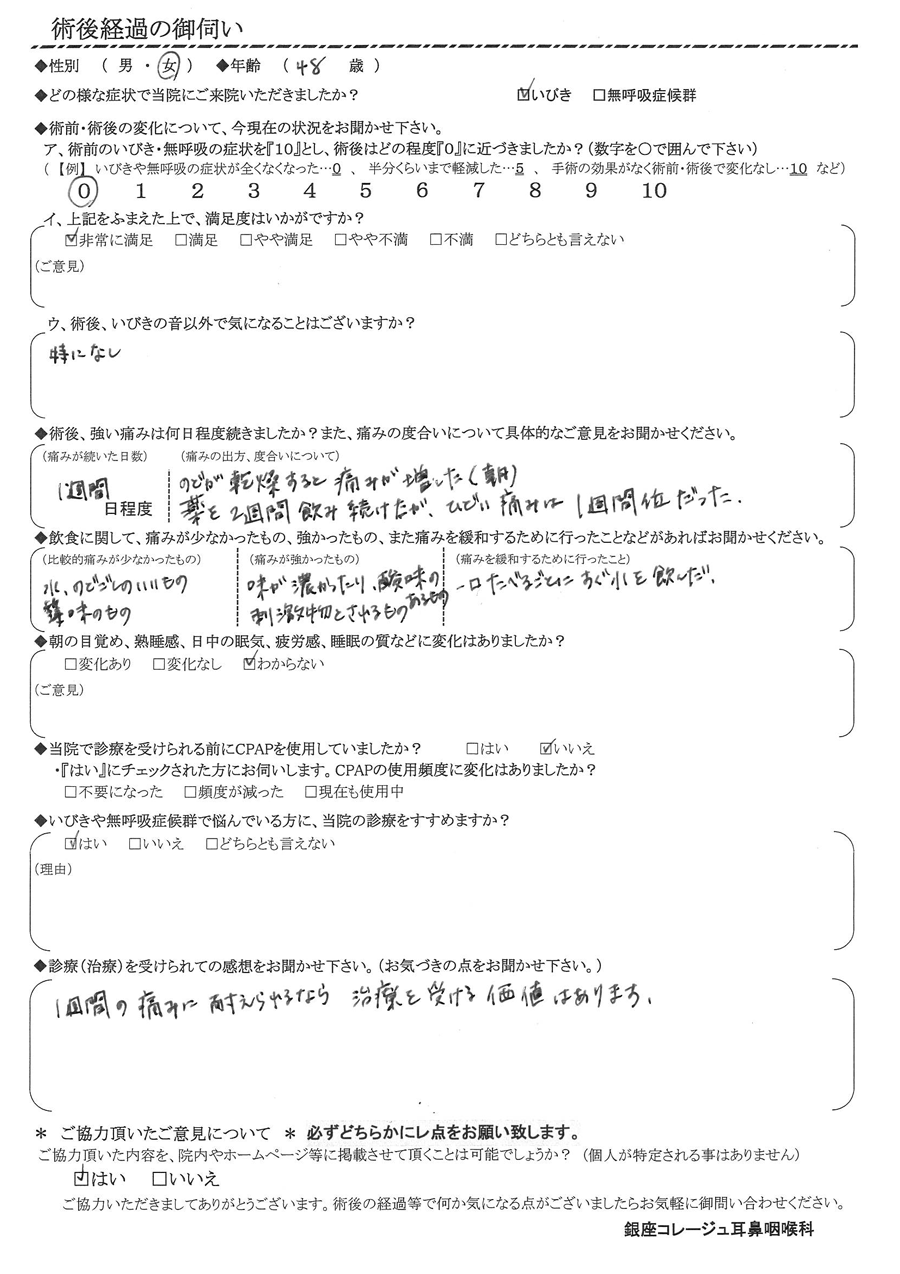 術後経過の御伺い
◆性別 （ 男 ・ 女 ） ◆年齢 （ 48 歳 ）
◆どの様な症状で当院にご来院いただきましたか？ ☑いびき □無呼吸症候群
◆術前・術後の変化について、今現在の状況をお聞かせ下さい。
ア、術前のいびき・無呼吸の症状を『10』とし、術後はどの程度『0』に近づきましたか？（数字を〇で囲んで下さい）
（ 【例】 いびきや無呼吸の症状が全くなくなった…0 、 半分くらいまで軽減した…5 、 手術の効果がなく術前・術後で変化なし…10 など）
0 1 2 3 4 5 6 7 8 9 10
イ、上記をふまえた上で、満足度はいかがですか？
☑非常に満足 □満足 □やや満足 □やや不満 □不満 □どちらとも言えない
（ご意見）
ウ、術後、いびきの音以外で気になることはございますか？
特になし
◆術後、強い痛みは何日程度続きましたか？また、痛みの度合いについて具体的なご意見をお聞かせください。
（痛みが続いた日数） （痛みの出方、度合いについて）
1週間 のどが乾燥すると痛みが増した（朝）
日程度 薬を2週間飲み続けたが、ひどい痛みは1週間位だった．
◆飲食に関して、痛みが少なかったもの、強かったもの、また痛みを緩和するために行ったことなどがあればお聞かせください。
（比較的痛みが少なかったもの） （痛みが強かったもの） （痛みを緩和するために行ったこと）
水、のどごしのいいもの 味が濃かったり、酸味の あるもの 一口たべるごとにすぐ水を飲んだ．
薄味のもの 刺激物とされるもの
◆朝の目覚め、熟睡感、日中の眠気、疲労感、睡眠の質などに変化はありましたか？
□変化あり □変化なし ☑わからない
（ご意見）
◆当院で診療を受けられる前にCPAPを使用していましたか？ □はい ☑いいえ
・『はい』にチェックされた方にお伺いします。CPAPの使用頻度に変化はありましたか？
□不要になった □頻度が減った □現在も使用中
◆いびきや無呼吸症候群で悩んでいる方に、当院の診療をすすめますか？
☑はい □いいえ □どちらとも言えない
（理由）
◆診療（治療）を受けられての感想をお聞かせ下さい。（お気づきの点をお聞かせ下さい。）
1週間の痛みに耐えられるなら 治療を受ける価値はあります．
＊ ご協力頂いたご意見について ＊ 必ずどちらかにレ点をお願い致します。
ご協力頂いた内容を、院内やホームページ等に掲載させて頂くことは可能でしょうか？ （個人が特定される事はありません）
☑はい □いいえ
ご協力いただきましてありがとうございます。術後の経過等で何か気になる点がございましたらお気軽に御問い合わせください。
銀座コレージュ耳鼻咽喉科